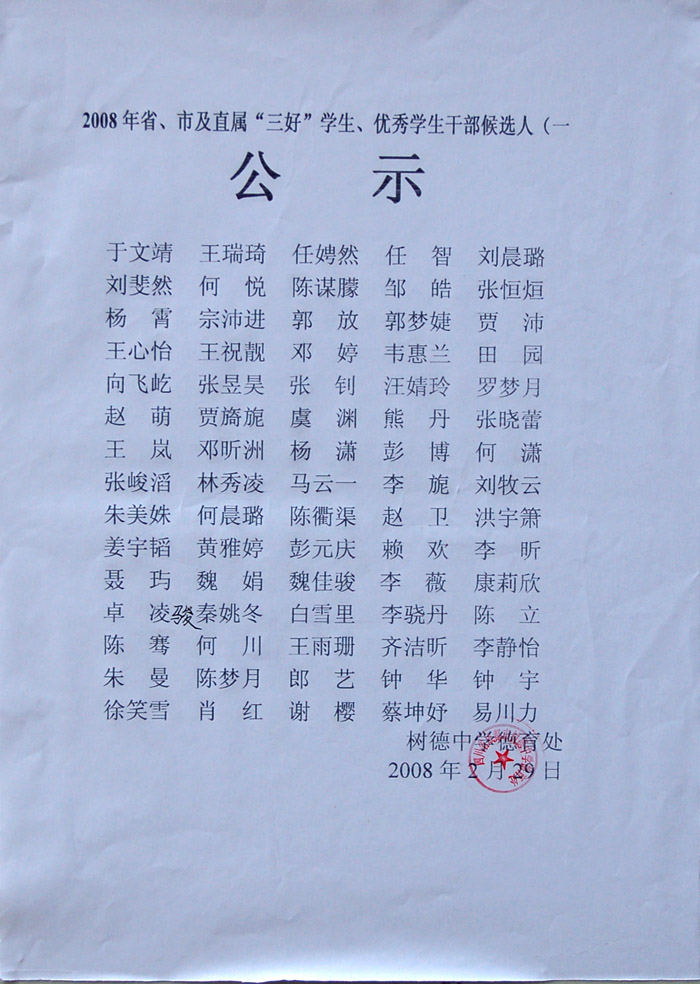 2008年省、市及直属“三好”学生、优秀学生干部候选人（一
公 示
于文靖 王瑞琦 任娉然 任 智 刘晨璐
刘斐然 何 悦 陈谋朦 邹 皓 张恒烜
杨 霄 宗沛进 郭 放 郭梦婕 贾 沛
王心怡 王祝靓 邓 婷 韦惠兰 田 园
向飞屹 张昱昊 张 钊 汪婧玲 罗梦月
赵 萌 贾旖旎 虞 渊 熊 丹 张晓蕾
王 岚 邓昕洲 杨 潇 彭 博 何 潇
张峻滔 林秀凌 马云一 李 旎 刘牧云
朱美姝 何晨璐 陈衢渠 赵 卫 洪宇箫
姜宇韬 黄雅婷 彭元庆 赖 欢 李 昕
聂 玙 魏 娟 魏佳骏 李 薇 康莉欣
卓 凌骏 秦姚冬 白雪里 李骁丹 陈 立
陈 骞 何 川 王雨珊 齐洁昕 李静怡
朱 曼 陈梦月 郎 艺 钟 华 钟 宇
徐笑雪 肖 红 谢 樱 蔡坤妤 易川力
树德中学德育处
2008年2月29日